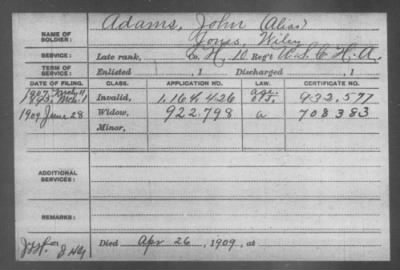 Adams, John (Alias)
NAME OF SOLDIER: Jones, Wiley
SERVICE: Late rank, Co. H, 10 Reg't U.S.C.H.A.
TERM OF SERVICE: Enlisted , 1 Discharged , 1
DATE OF FILING. CLASS. APPLICATION NO. LAW. CERTIFICATE NO.
1907 11 age
1895 Mch. 1 Invalid, 1,164,426 932,577
1909 June 28 Widow, 922.798 a 708383
Minor,
ADDITIONAL SERVICES:
REMARKS:
Died Apr 26, 1909, at